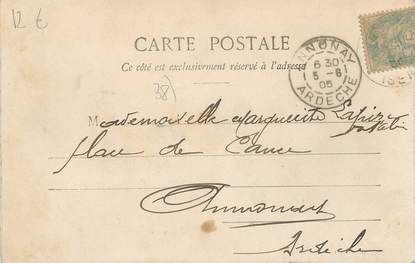 12 €
CARTE POSTALE
Ce côté est exclusivement réservé à l'adresse
ANNONAY
6 30
5 -8
05
ARDECHE
38)
Mademoiselle Marguerite
place de Cance
Annonay
Ardèche